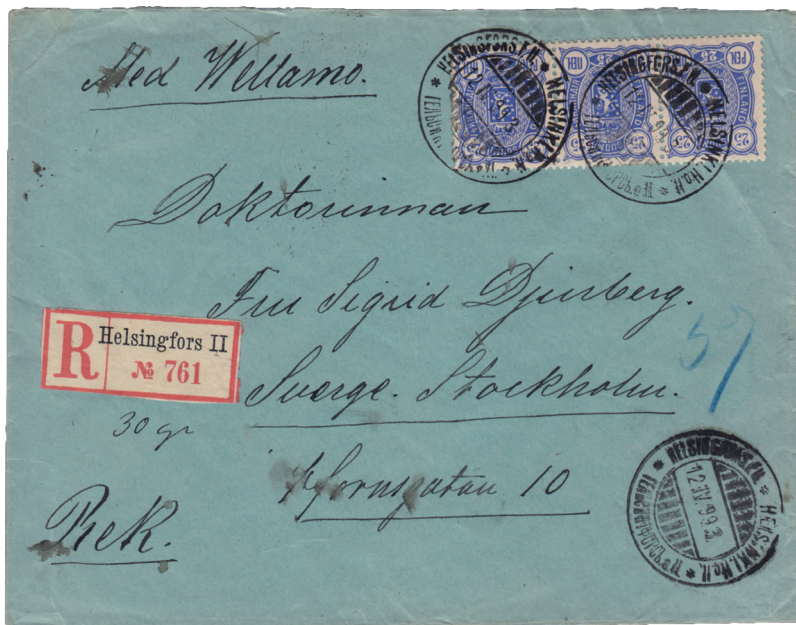 Med Wellamo.
HELSINGFORS. F.K. * HELSINKI. No. II.
25 PEN. 25
FINLAND
SUOMI
25 PEN. 25
Doktorinnan
Fru Sigrid Djurberg.
R Helsingfors II
№ 761
Sverge. Stockholm.
30 gr
Hornsgatan 10
Rek.
HELSINGFORS. F.K. * HELSINKI. No. II. *
12.IV.99.3